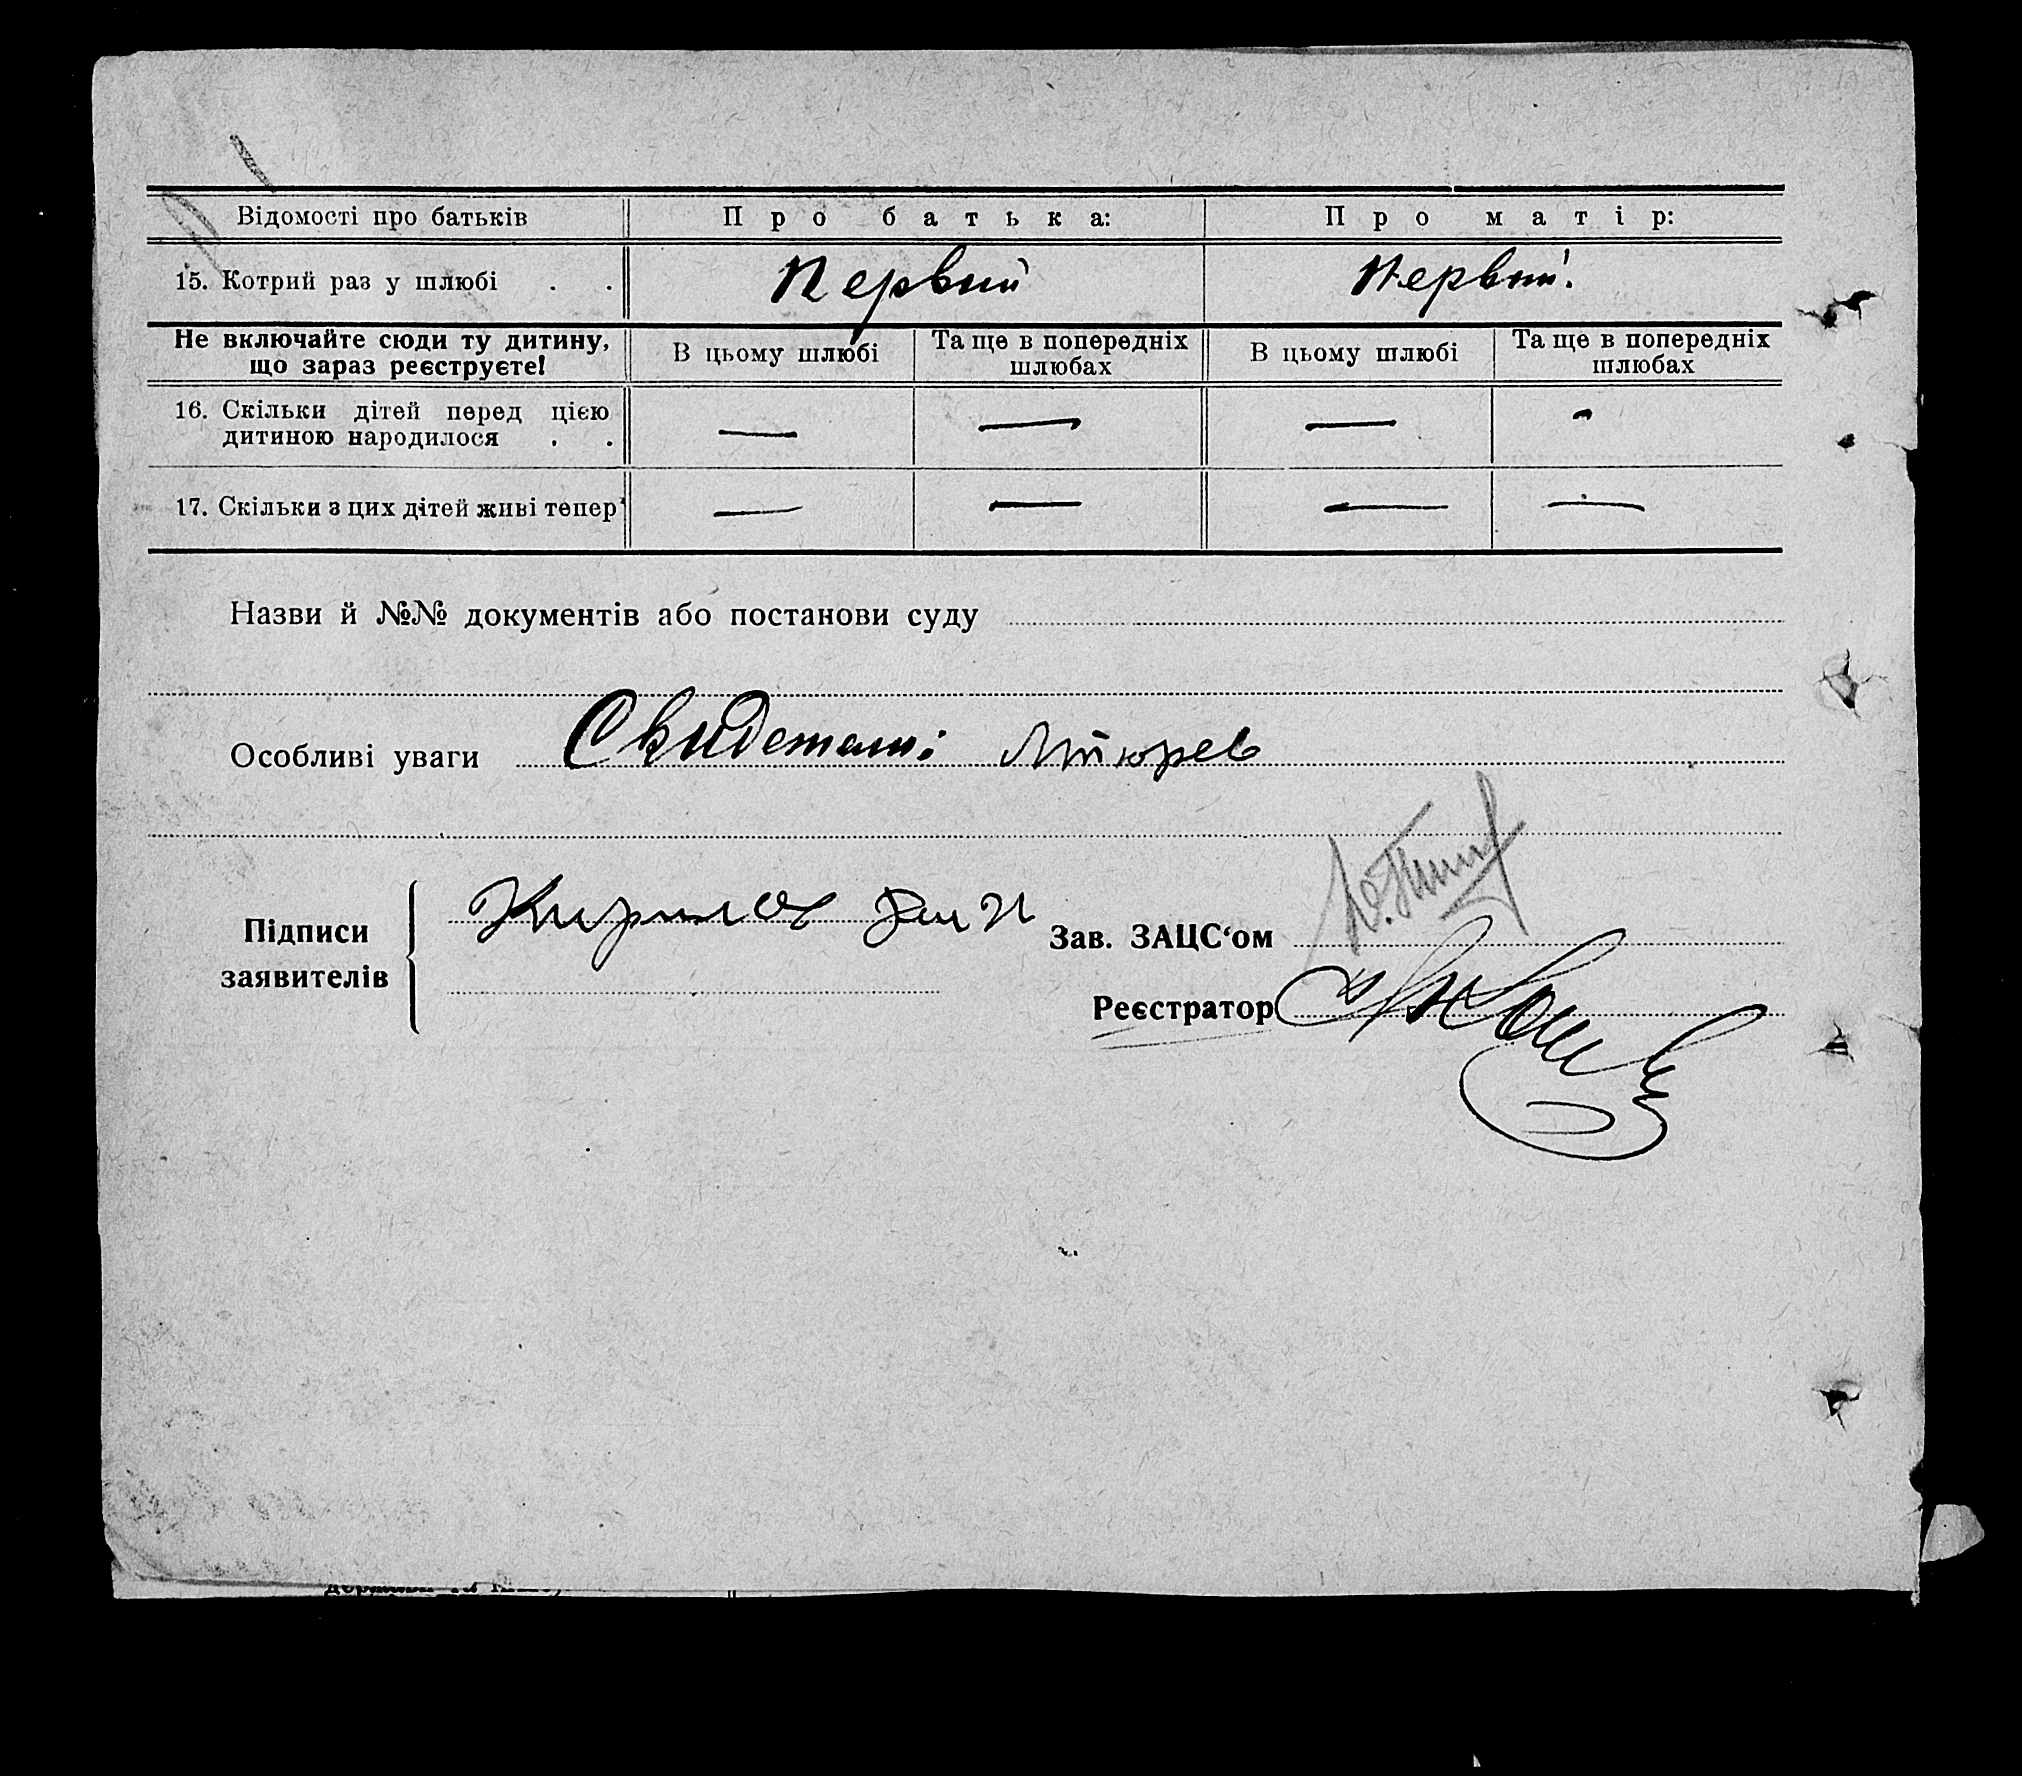 Відомості про батьків Про батька: Про матір:
15. Котрий раз у шлюбі . . Первый Первый.
Не включайте сюди ту дитину, що зараз реєструєте!
В цьому шлюбі
Та ще в попередніх шлюбах
В цьому шлюбі
Та ще в попередніх шлюбах
16. Скільки дітей перед цією
дитиною народилося . . — — — -
17. Скільки з цих дітей живі тепер — — — —
Назви й №№ документів або постанови суду
Особливі уваги Свидетели:
Підписи
заявителів
Зав. ЗАЦС‘ом
Реєстратор